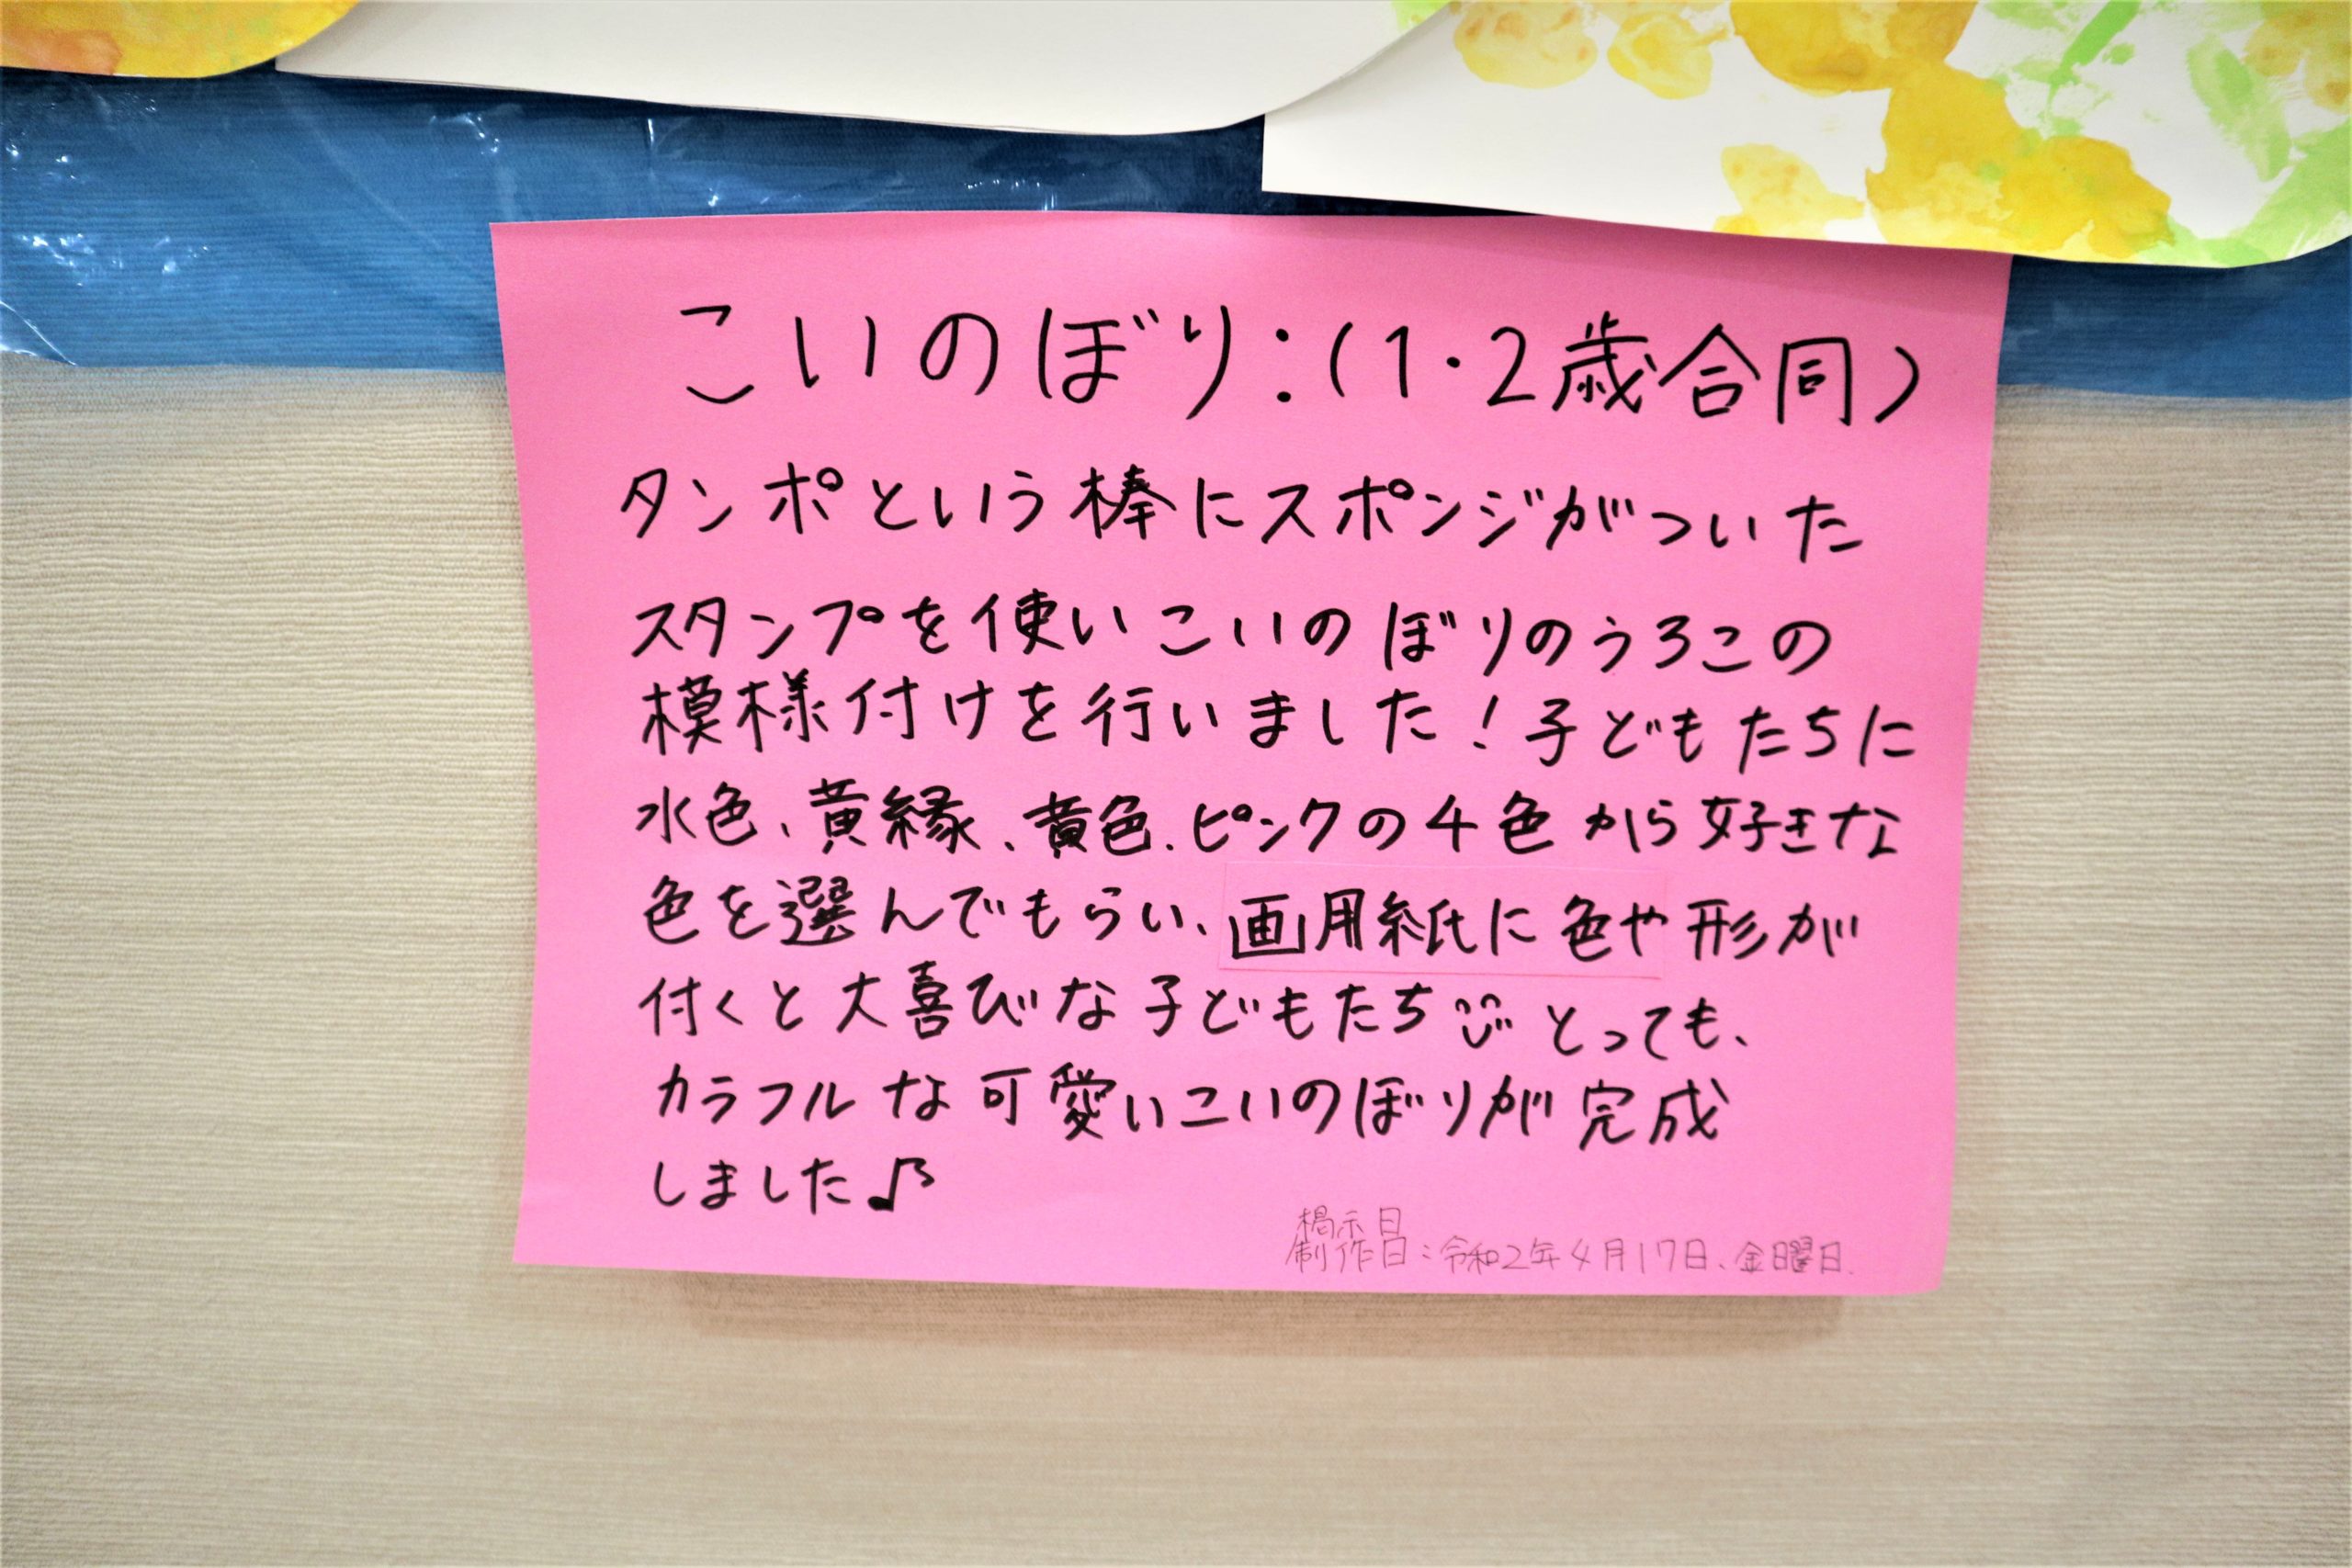 こいのぼり:(1・2歳合同)
タンポという棒にスポンジがついた
スタンプを使いこいのぼりのうろこの
模様付けを行いました!子どもたちに
水色、黄縁、黄色、ピンクの4色から好きな
色を選んでもらい、画用紙に色や形が
付くと大喜びな子どもたち とっても、
カラフルな可愛いこいのぼりが完成
しました♪
掲示日
制作日:令和2年4月17日、金曜日.